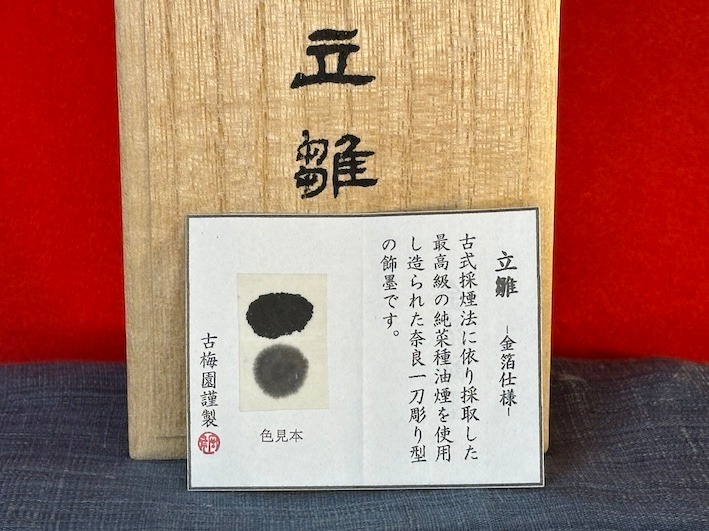 立雛
立雛 ―金箔仕様―
古式採煙法に依り採取した
最高級の純菜種油煙を使用
し造られた奈良一刀彫り型
の飾墨です。
色見本
古梅園謹製